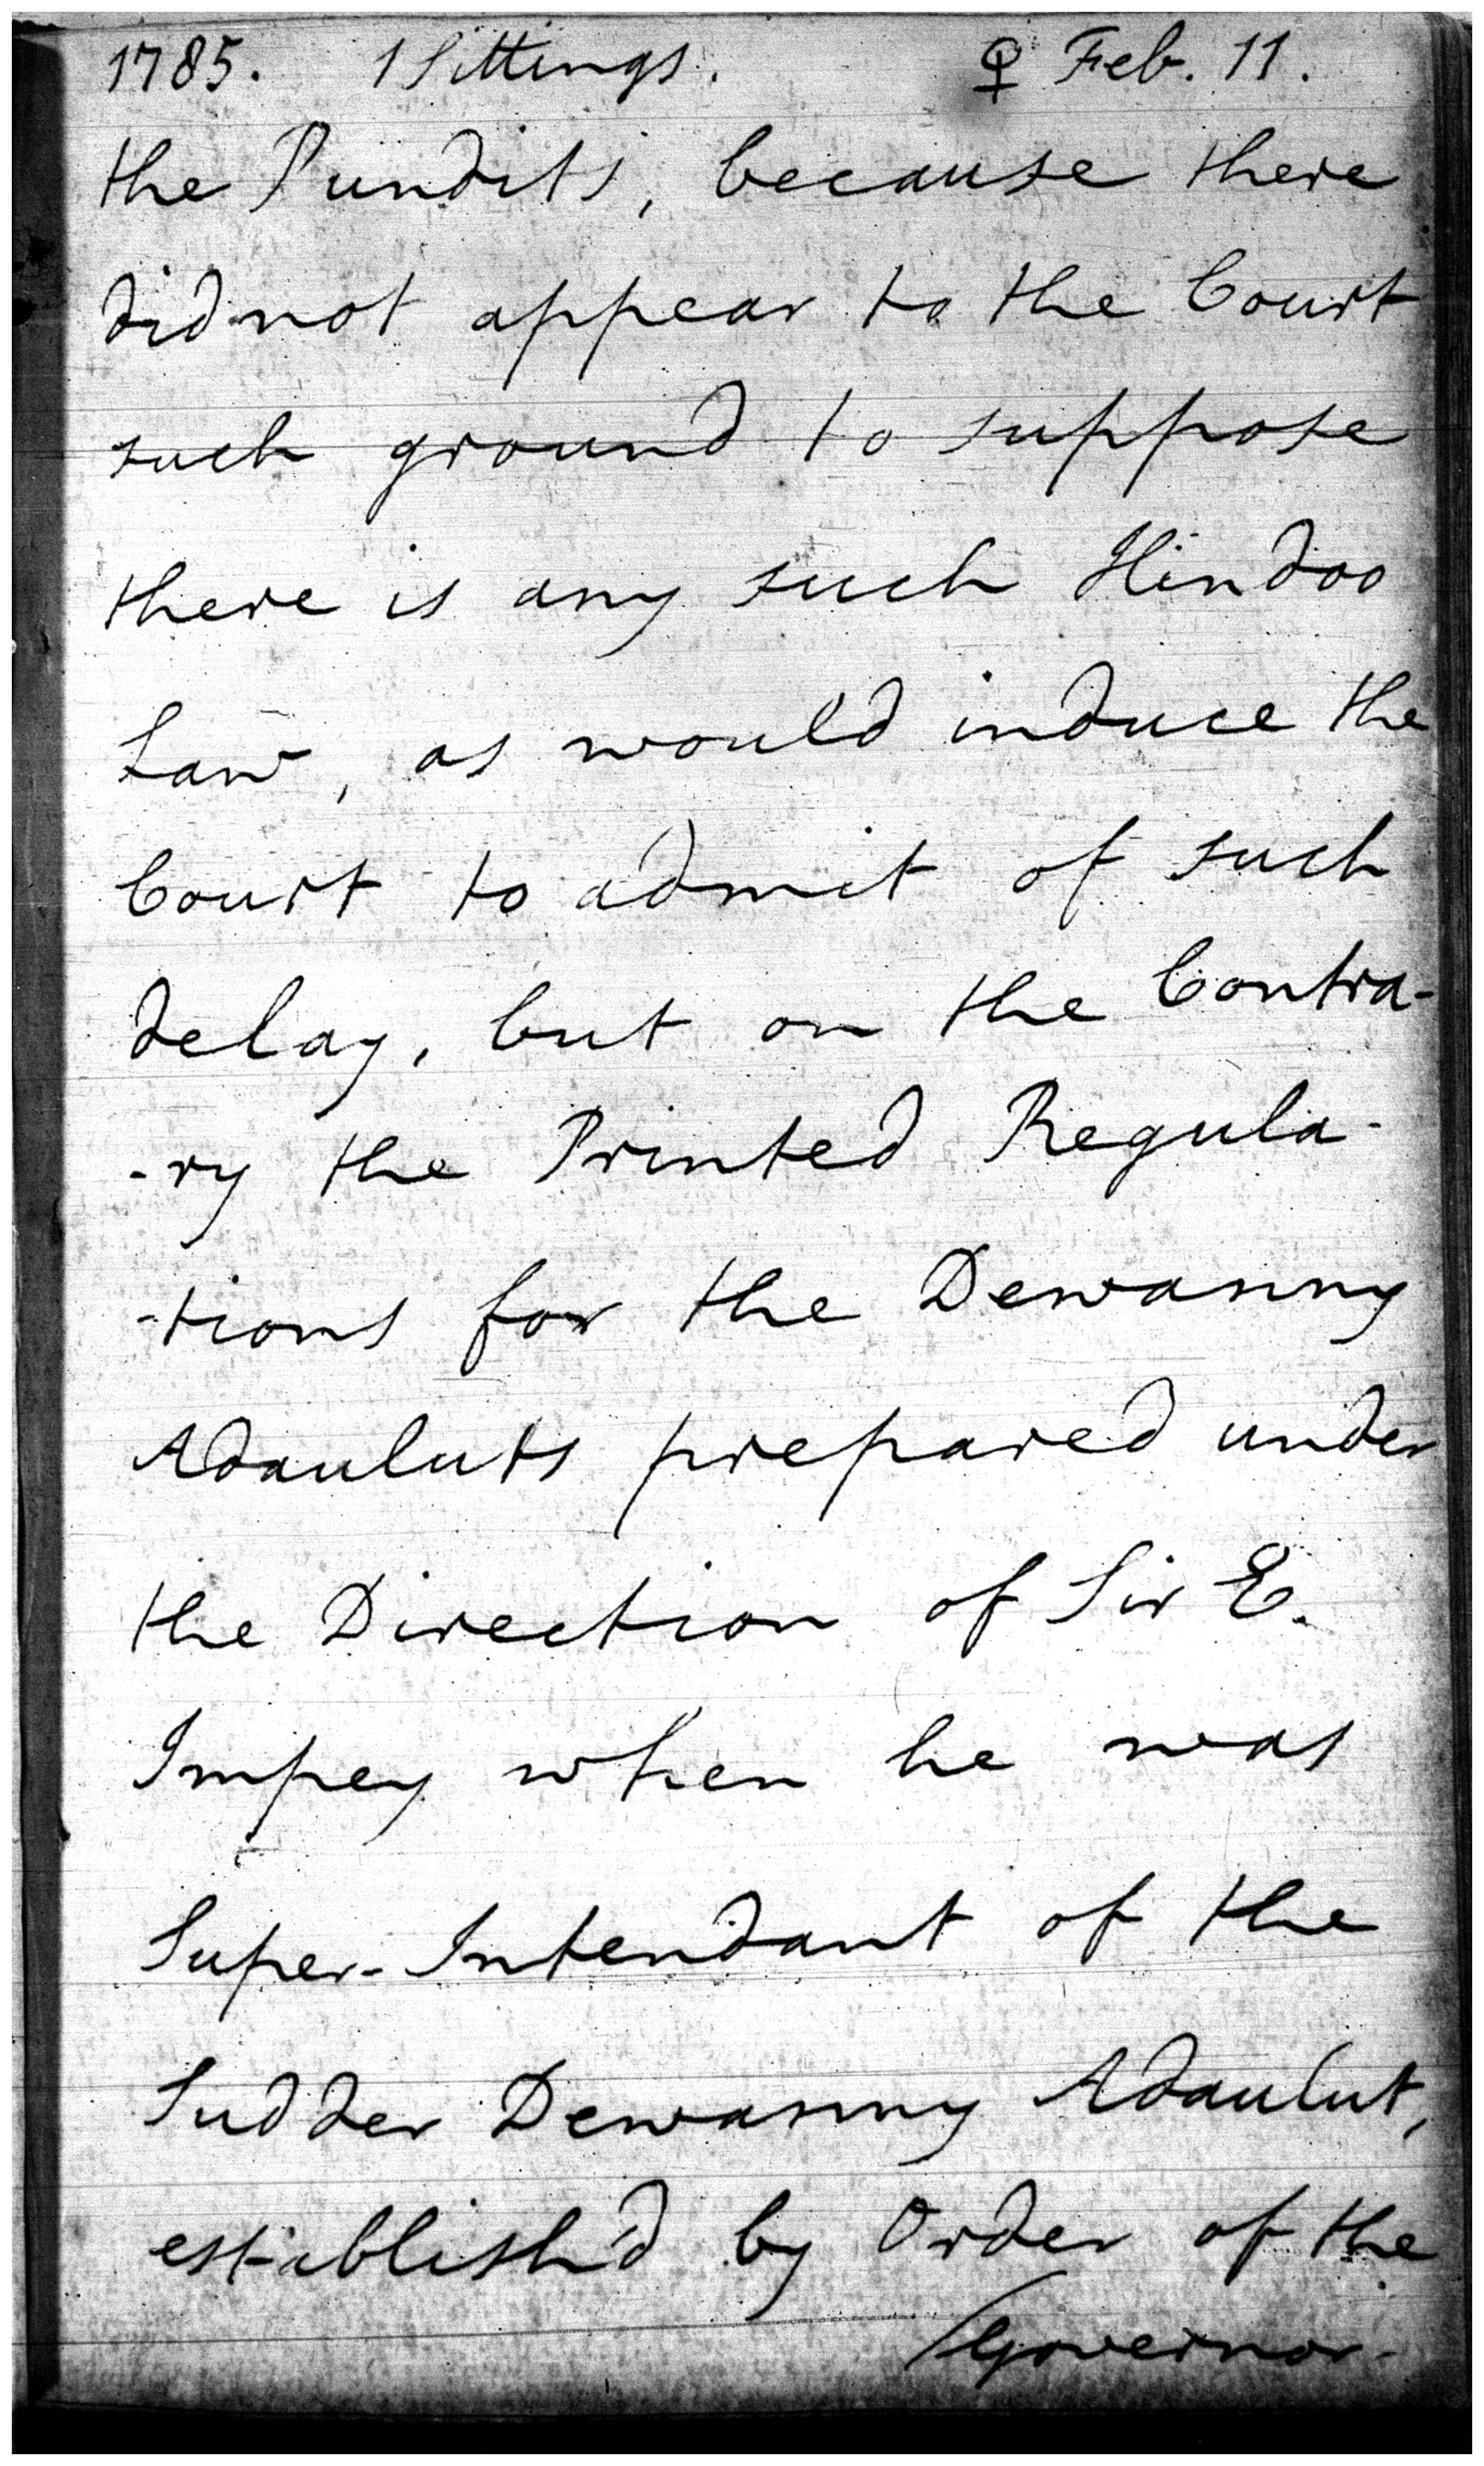 1785. 1 Sittings. ♀ Feb. 11.
the Pundits, because there
did not appear to the Court
such ground to suppose
there is any such Hindoo
Law, as would induce the
Court to admit of such
delay, but on the Contra-
-ry the Printed Regula-
-tions for the Dewanny
Adauluts prepared under
the Direction of Sir E.
Impey when he was
Super-Intendant of the
Sudder Dewanny Adaulut,
establish'd by Order of the
/Governor-